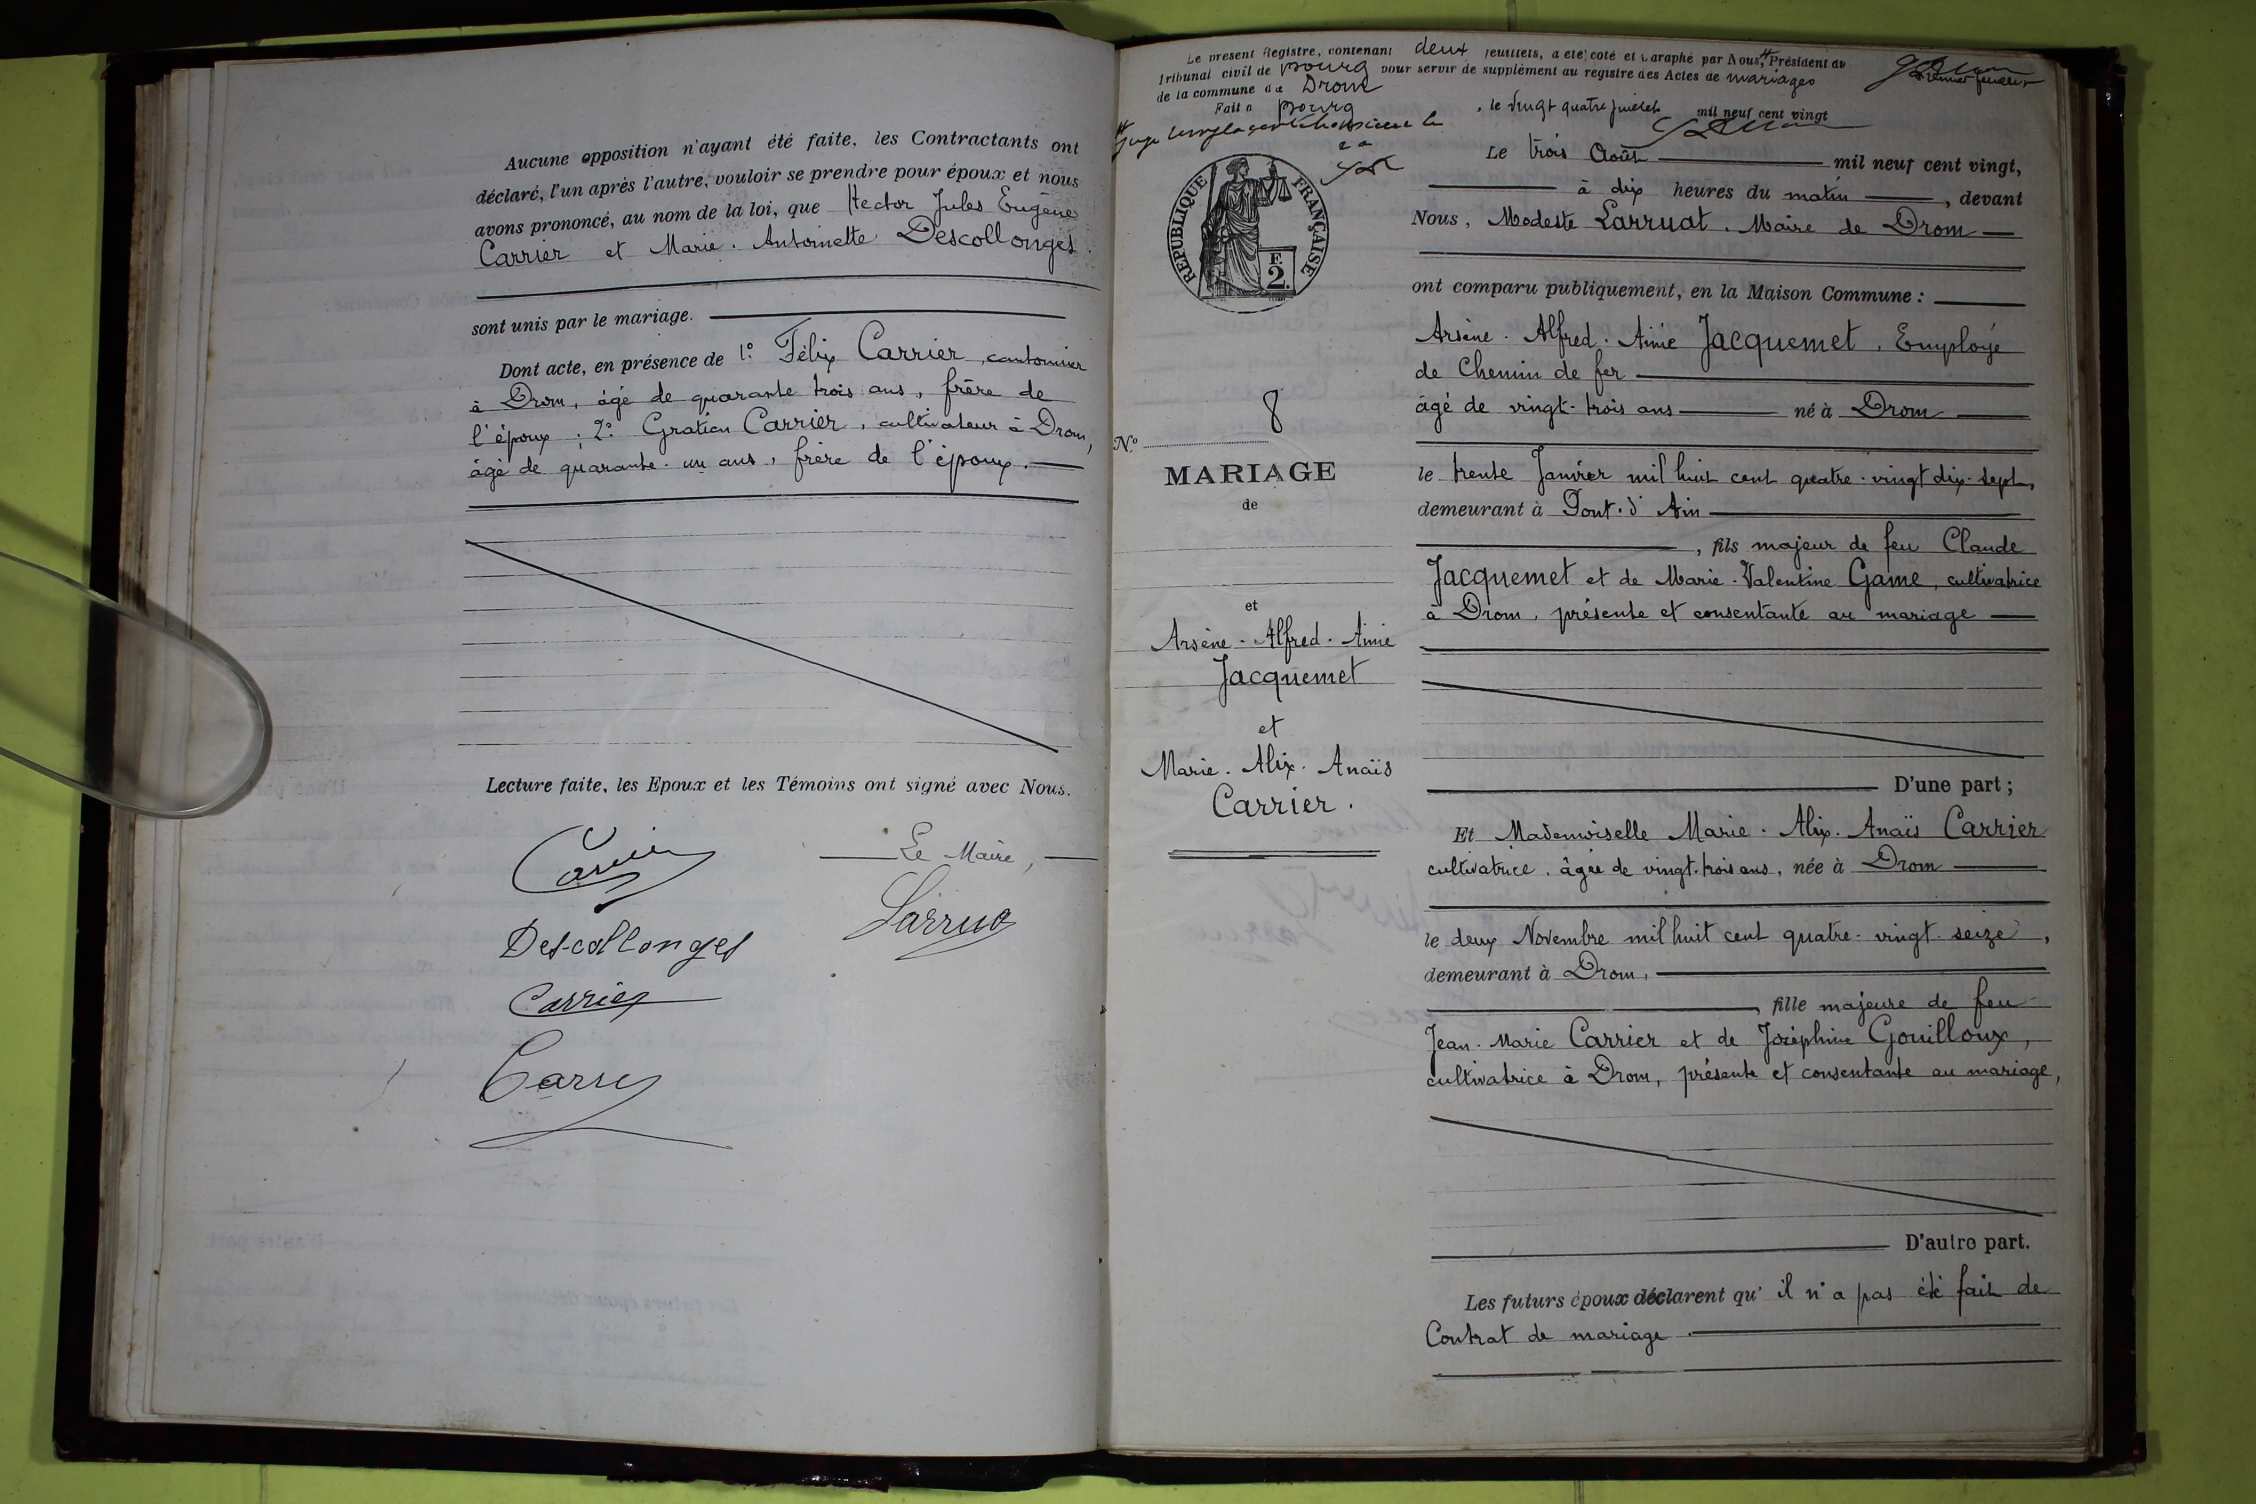 Aucune opposition n'ayant été faite, les Contractants ont
déclaré, l'un après l'autre, vouloir se prendre pour époux et nous
avons prononcé, au nom de la loi, que Hector Jules Eugène
Carrier et Marie. Antoinette Descollonges.
sont unis par le mariage.
Dont acte, en présence de 1° Félix Carrier, cantonnier
à Drom, âgé de quarante trois ans, frère de
l'époux; 2° Gratien Carrier, cultivateur à Drom,
âgé de quarante-un ans, frère de l'époux.
Lecture faite, les Epoux et les Témoins ont signé avec Nous.
Carrier
Le Maire,
Larruat
Descollonges
Carrier
Le présent Registre, contenant deux feuillets, a été coté et paraphé par Nous, Président du
Tribunal civil de Bourg pour servir de supplément au registre des Actes de mariages
de la commune de Drom
Fait à Bourg, le vingt quatre juillet mil neuf cent vingt
RÉPUBLIQUE FRANÇAISE
F.
2.
N° 8
MARIAGE
de
et
Arsène. Alfred. Aimé
Jacquemet
et
Marie. Alix. Anaïs
Carrier.
Le trois Août mil neuf cent vingt,
à dix heures du matin, devant
Nous, Modeste Larruat. Maire de Drom
ont comparu publiquement, en la Maison Commune :
Arsène. Alfred. Aimé Jacquemet, Employé
de Chemin de fer
âgé de vingt-trois ans né à Drom
le trente Janvier mil huit cent quatre-vingt dix-sept,
demeurant à Pont. d'Ain
, fils majeur de feu Claude
Jacquemet et de Marie-Valentine Game, cultivatrice
à Drom, présente et consentante au mariage
D'une part ;
Et Mademoiselle Marie. Alix. Anaïs Carrier
cultivatrice, âgée de vingt-trois ans, née à Drom
le deux Novembre mil huit cent quatre-vingt-seize,
demeurant à Drom,
, fille majeure de feu
Jean-Marie Carrier et de Joséphine Gouilloux,
cultivatrice à Drom, présente et consentante au mariage,
D'autre part.
Les futurs époux déclarent qu'il n'a pas été fait de
Contrat de mariage.